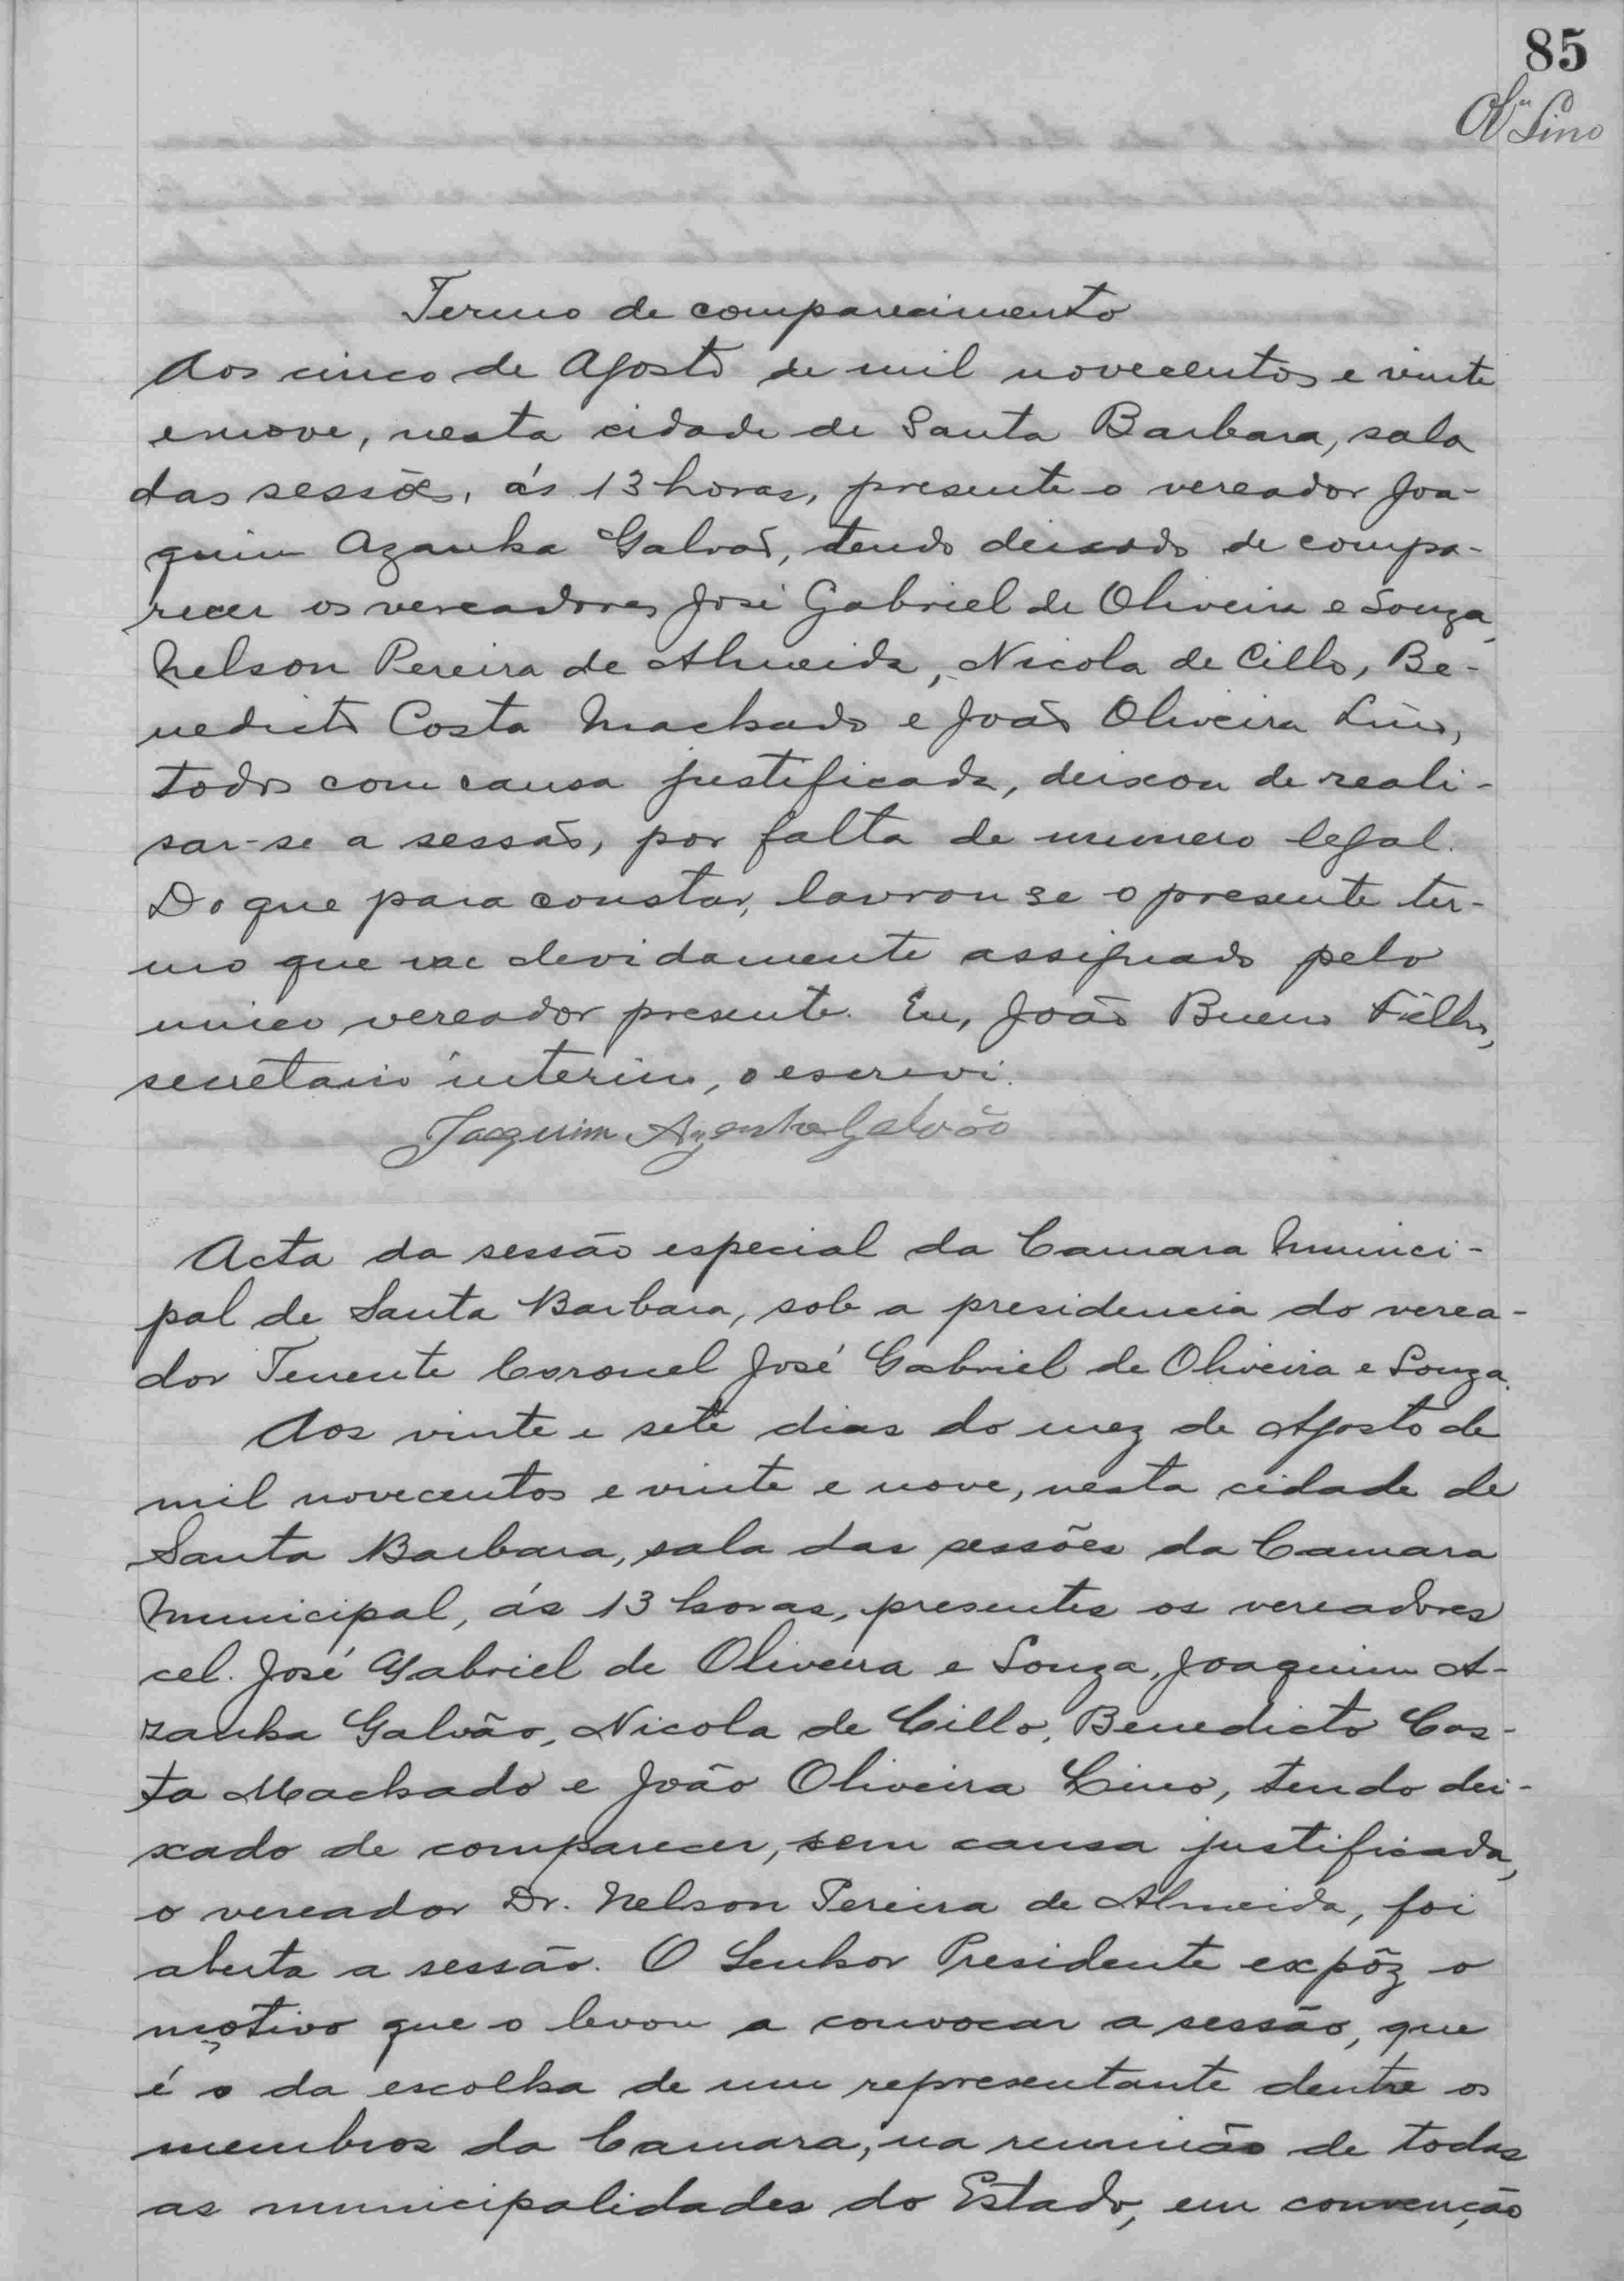 85
Olª Lino
Termo de comparecimento
Aos cinco de Agosto de mil novecentos e vinte
e nove, nesta cidade de Santa Barbara, sala
das sessões, ás 13 horas, presente o vereador Joa-
quim Azanha Galvão, tendo deixado de compa-
recer os vereadores José Gabriel de Oliveira e Souza,
Nelson Pereira de Almeida, Nicola de Cillo, Be-
nedicto Costa Machado e João Oliveira Lino,
todos com causa justificada, deixou de reali-
sar-se a sessão, por falta de numero legal.
Do que para constar, lavrou se o presente ter-
mo que vae devidamente assignado pelo
unico vereador presente. Eu, João Bueno Filho,
secretario interino, o escrevi.
Joaquim Azanha Galvão
Acta da sessão especial da Camara Munici-
pal de Santa Barbara, sob a presidencia do verea-
dor Tenente Coronel José Gabriel de Oliveira e Souza.
Aos vinte e sete dias do mez de Agosto de
mil novecentos e vinte e nove, nesta cidade de
Santa Barbara, sala das sessões da Camara
Municipal, ás 13 horas, presentes os vereadores
cel. José Gabriel de Oliveira e Souza, Joaquim A-
zanha Galvão, Nicola de Cillo, Benedicto Cos-
ta Machado e João Oliveira Lino, tendo dei-
xado de comparecer, sem causa justificada,
o vereador Dr. Nelson Pereira de Almeida, foi
aberta a sessão. O Senhor Presidente expôz o
motivo que o levou a convocar a sessão, que
é o da escolha de um representante dentre os
membros da Camara, na reunião de todas
as municipalidades do Estado, em convenção